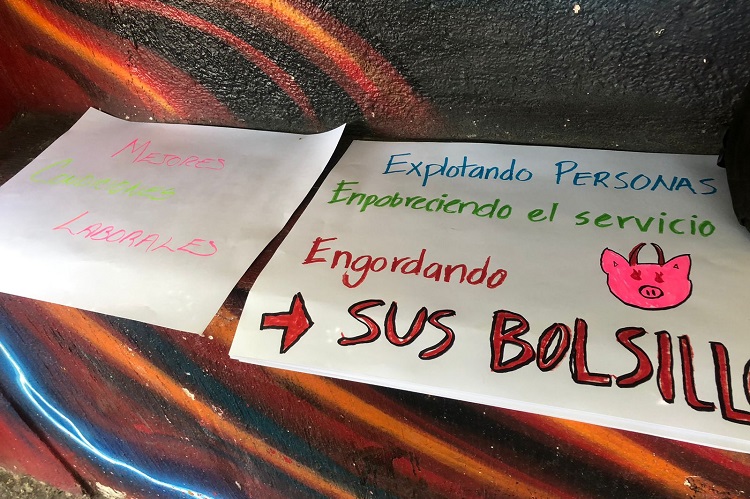 MEJORES
CONDICIONES
LABORALES
Explotando PERSONAS
Enpobreciendo el servicio
Engordando
→ SUS BOLSILLO